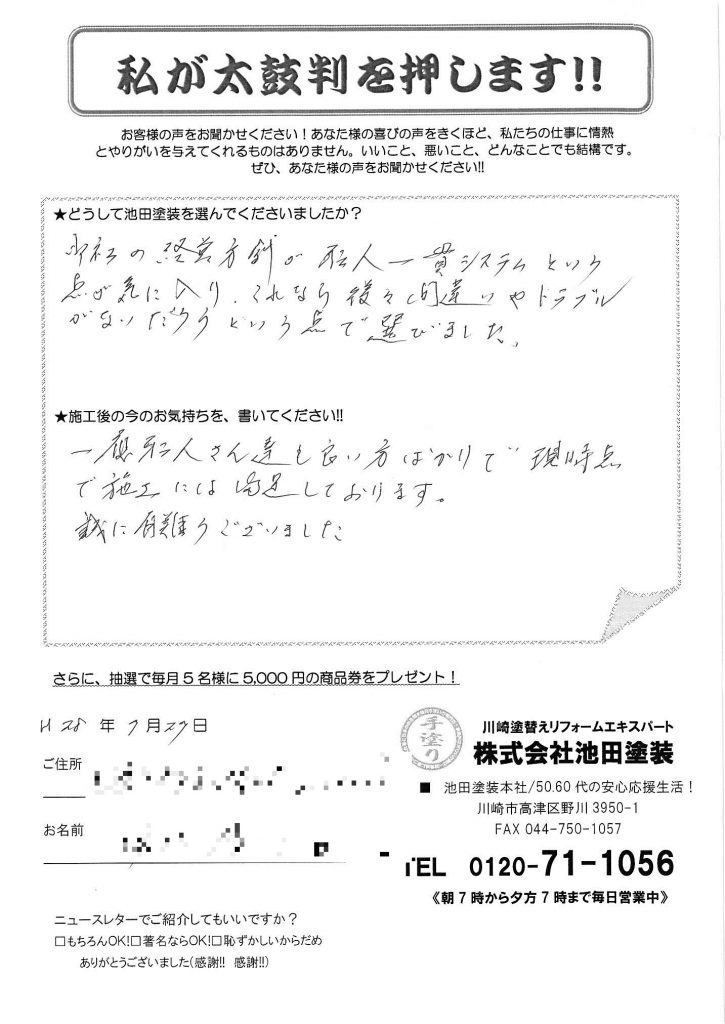 私が太鼓判を押します!!
お客様の声をお聞かせください！あなた様の喜びの声をきくほど、私たちの仕事に情熱
とやりがいを与えてくれるものはありません。いいこと、悪いこと、どんなことでも結構です。
ぜひ、あなた様の声をお聞かせください!!
★どうして池田塗装を選んでくださいましたか？
の経営方針が 職人一貫システムという
点が気に入り、これなら後々間違いやトラブル
がないだろうという点で選びました。
★施工後の今のお気持ちを、書いてください!!
職人さん達も良い方ばかりで現時点
で施工には満足しております。
誠に有難うございました
さらに、抽選で毎月5名様に5,000円の商品券をプレゼント！
H28年7月27日
ご住所
お名前
手塗り
川崎塗替えリフォームエキスパート
株式会社池田塗装
■ 池田塗装本社/50.60代の安心応援生活！
川崎市高津区野川3950-1
FAX 044-750-1057
TEL 0120-71-1056
《朝7時から夕方7時まで毎日営業中》
ニュースレターでご紹介してもいいですか？
□もちろんOK!□著名ならOK!□恥ずかしいからだめ
ありがとうございました(感謝!! 感謝!!)